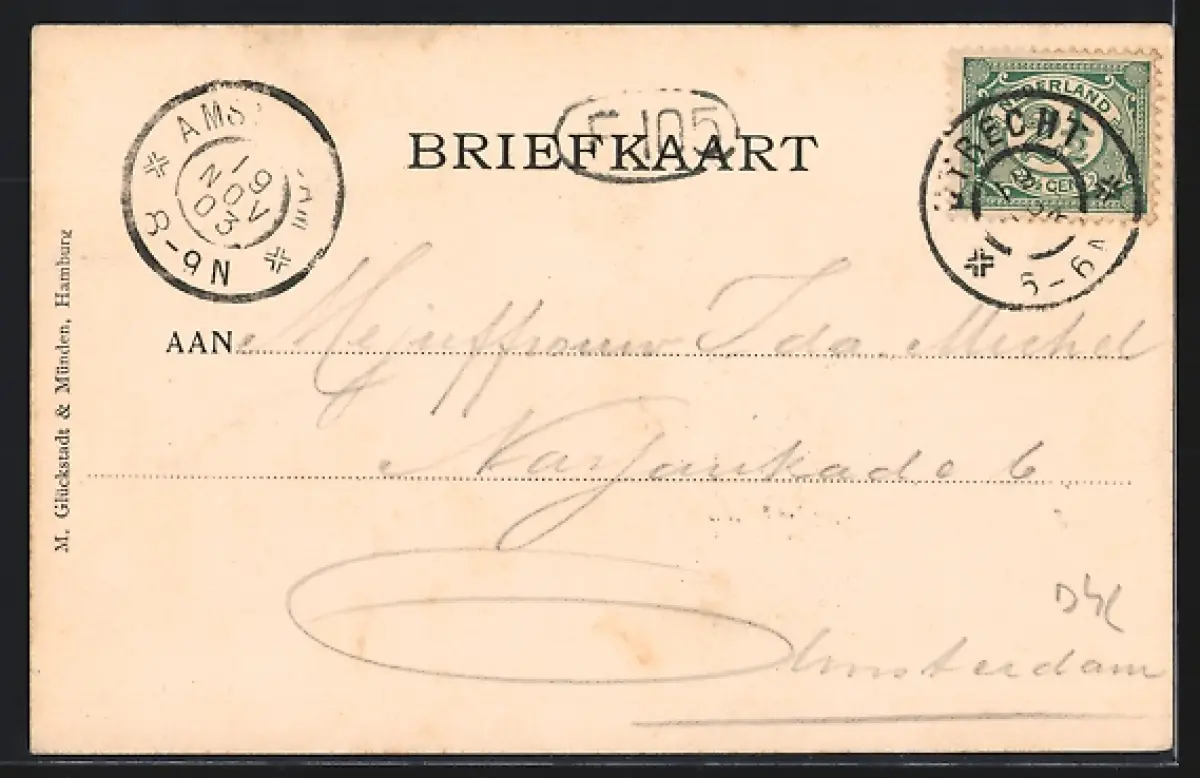 BRIEFKAART
AMS
19 NOV 03
8-9N
NEDERLAND
2½ CENT
UTRECHT
5-6
AAN Mejuffrouw Ida Michel
kade 6
Amsterdam
M. Glückstadt & Münden, Hamburg